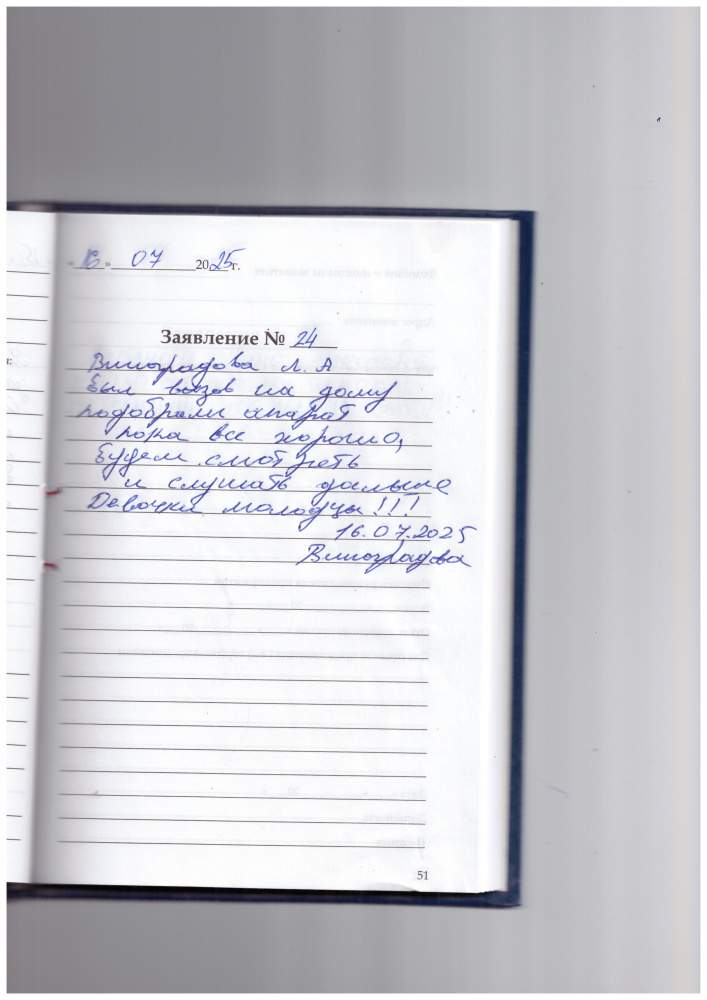 « 16 » 07 2025 г.
Заявление № 24
Виноградова Л. А
был вызов на дому
подобрали апарат
пока все хорошо,
будем смотреть
и слушать дальше
Девочки молодцы!!!
16.07.2025
Виноградова
51